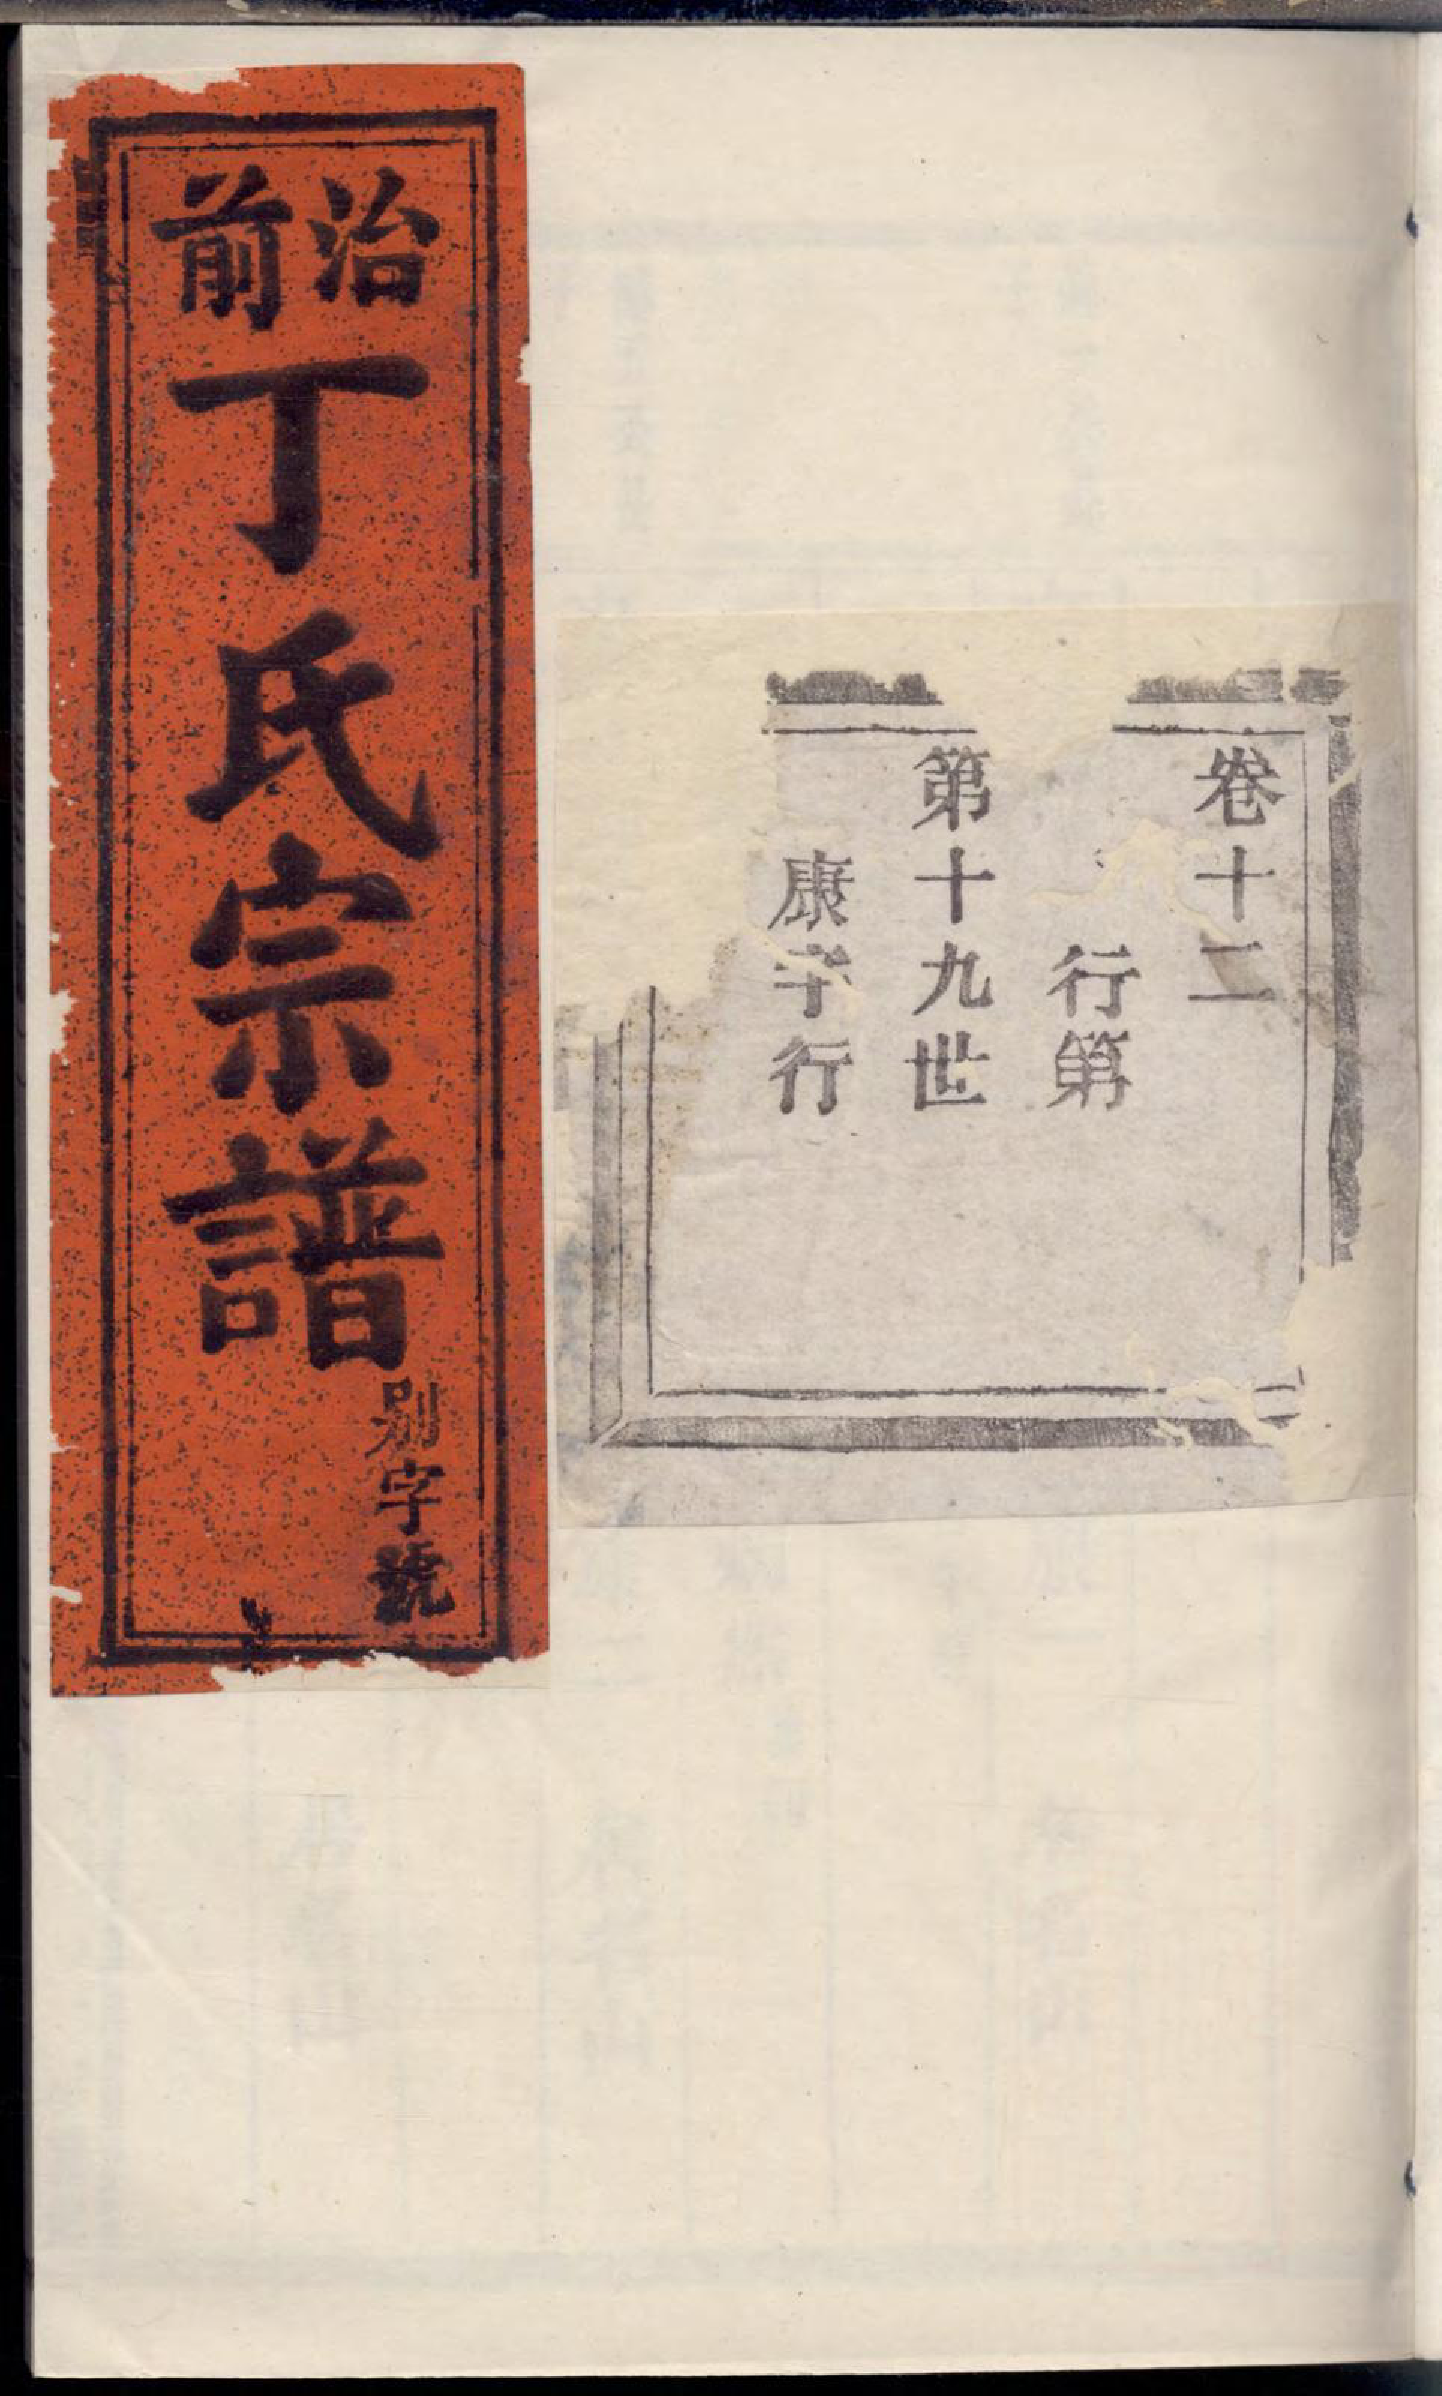 治前
丁氏宗譜
別字號
卷十二
行第
第十九世
康字行